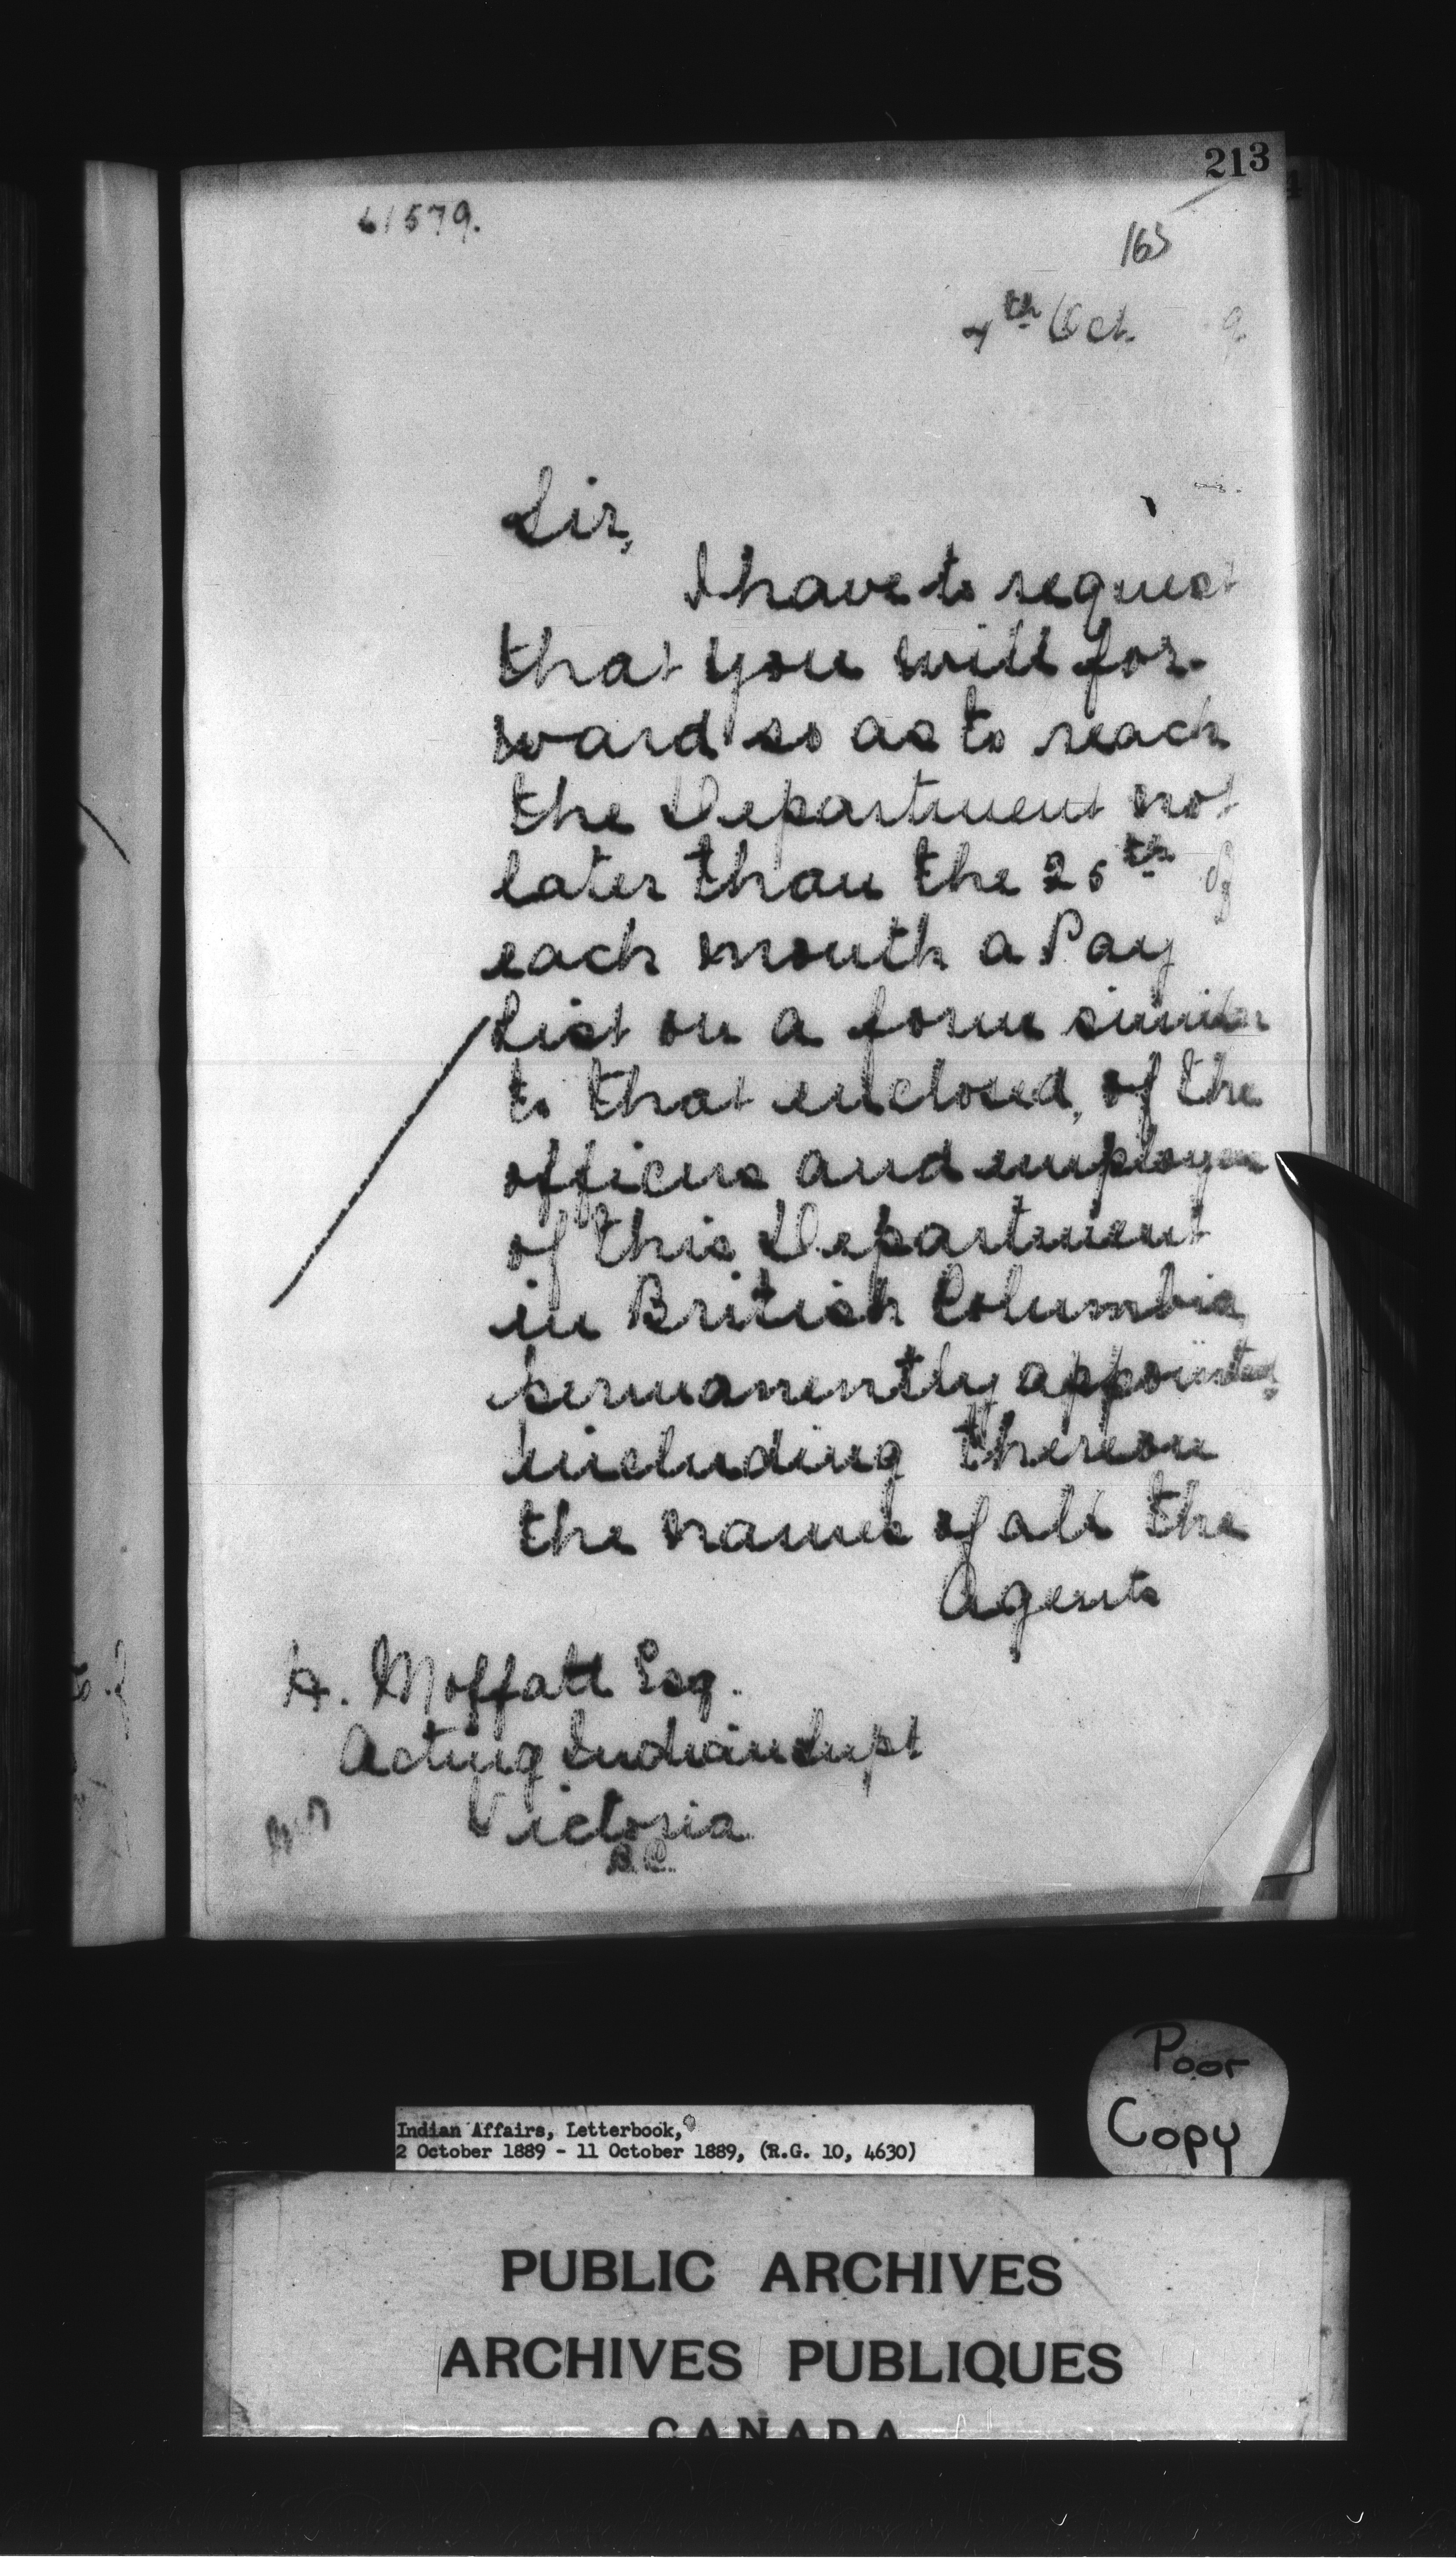 213
61579.
163
7th Oct. 9
Sir,
I have to request
that you will for-
ward so as to reach
the Department not
later than the 25th of
each month a Pay
List on a form similar
to that enclosed, of the
officers and employees
of this Department
in British Columbia
permanently appointed,
including thereon
the names of all the
Agents
H. Moffatt Esq.
Acting Indian Supt
Victoria
B.C.
Poor
Copy
Indian Affairs, Letterbook,
2 October 1889 - 11 October 1889, (R.G. 10, 4630)
PUBLIC ARCHIVES
ARCHIVES PUBLIQUES
CANADA